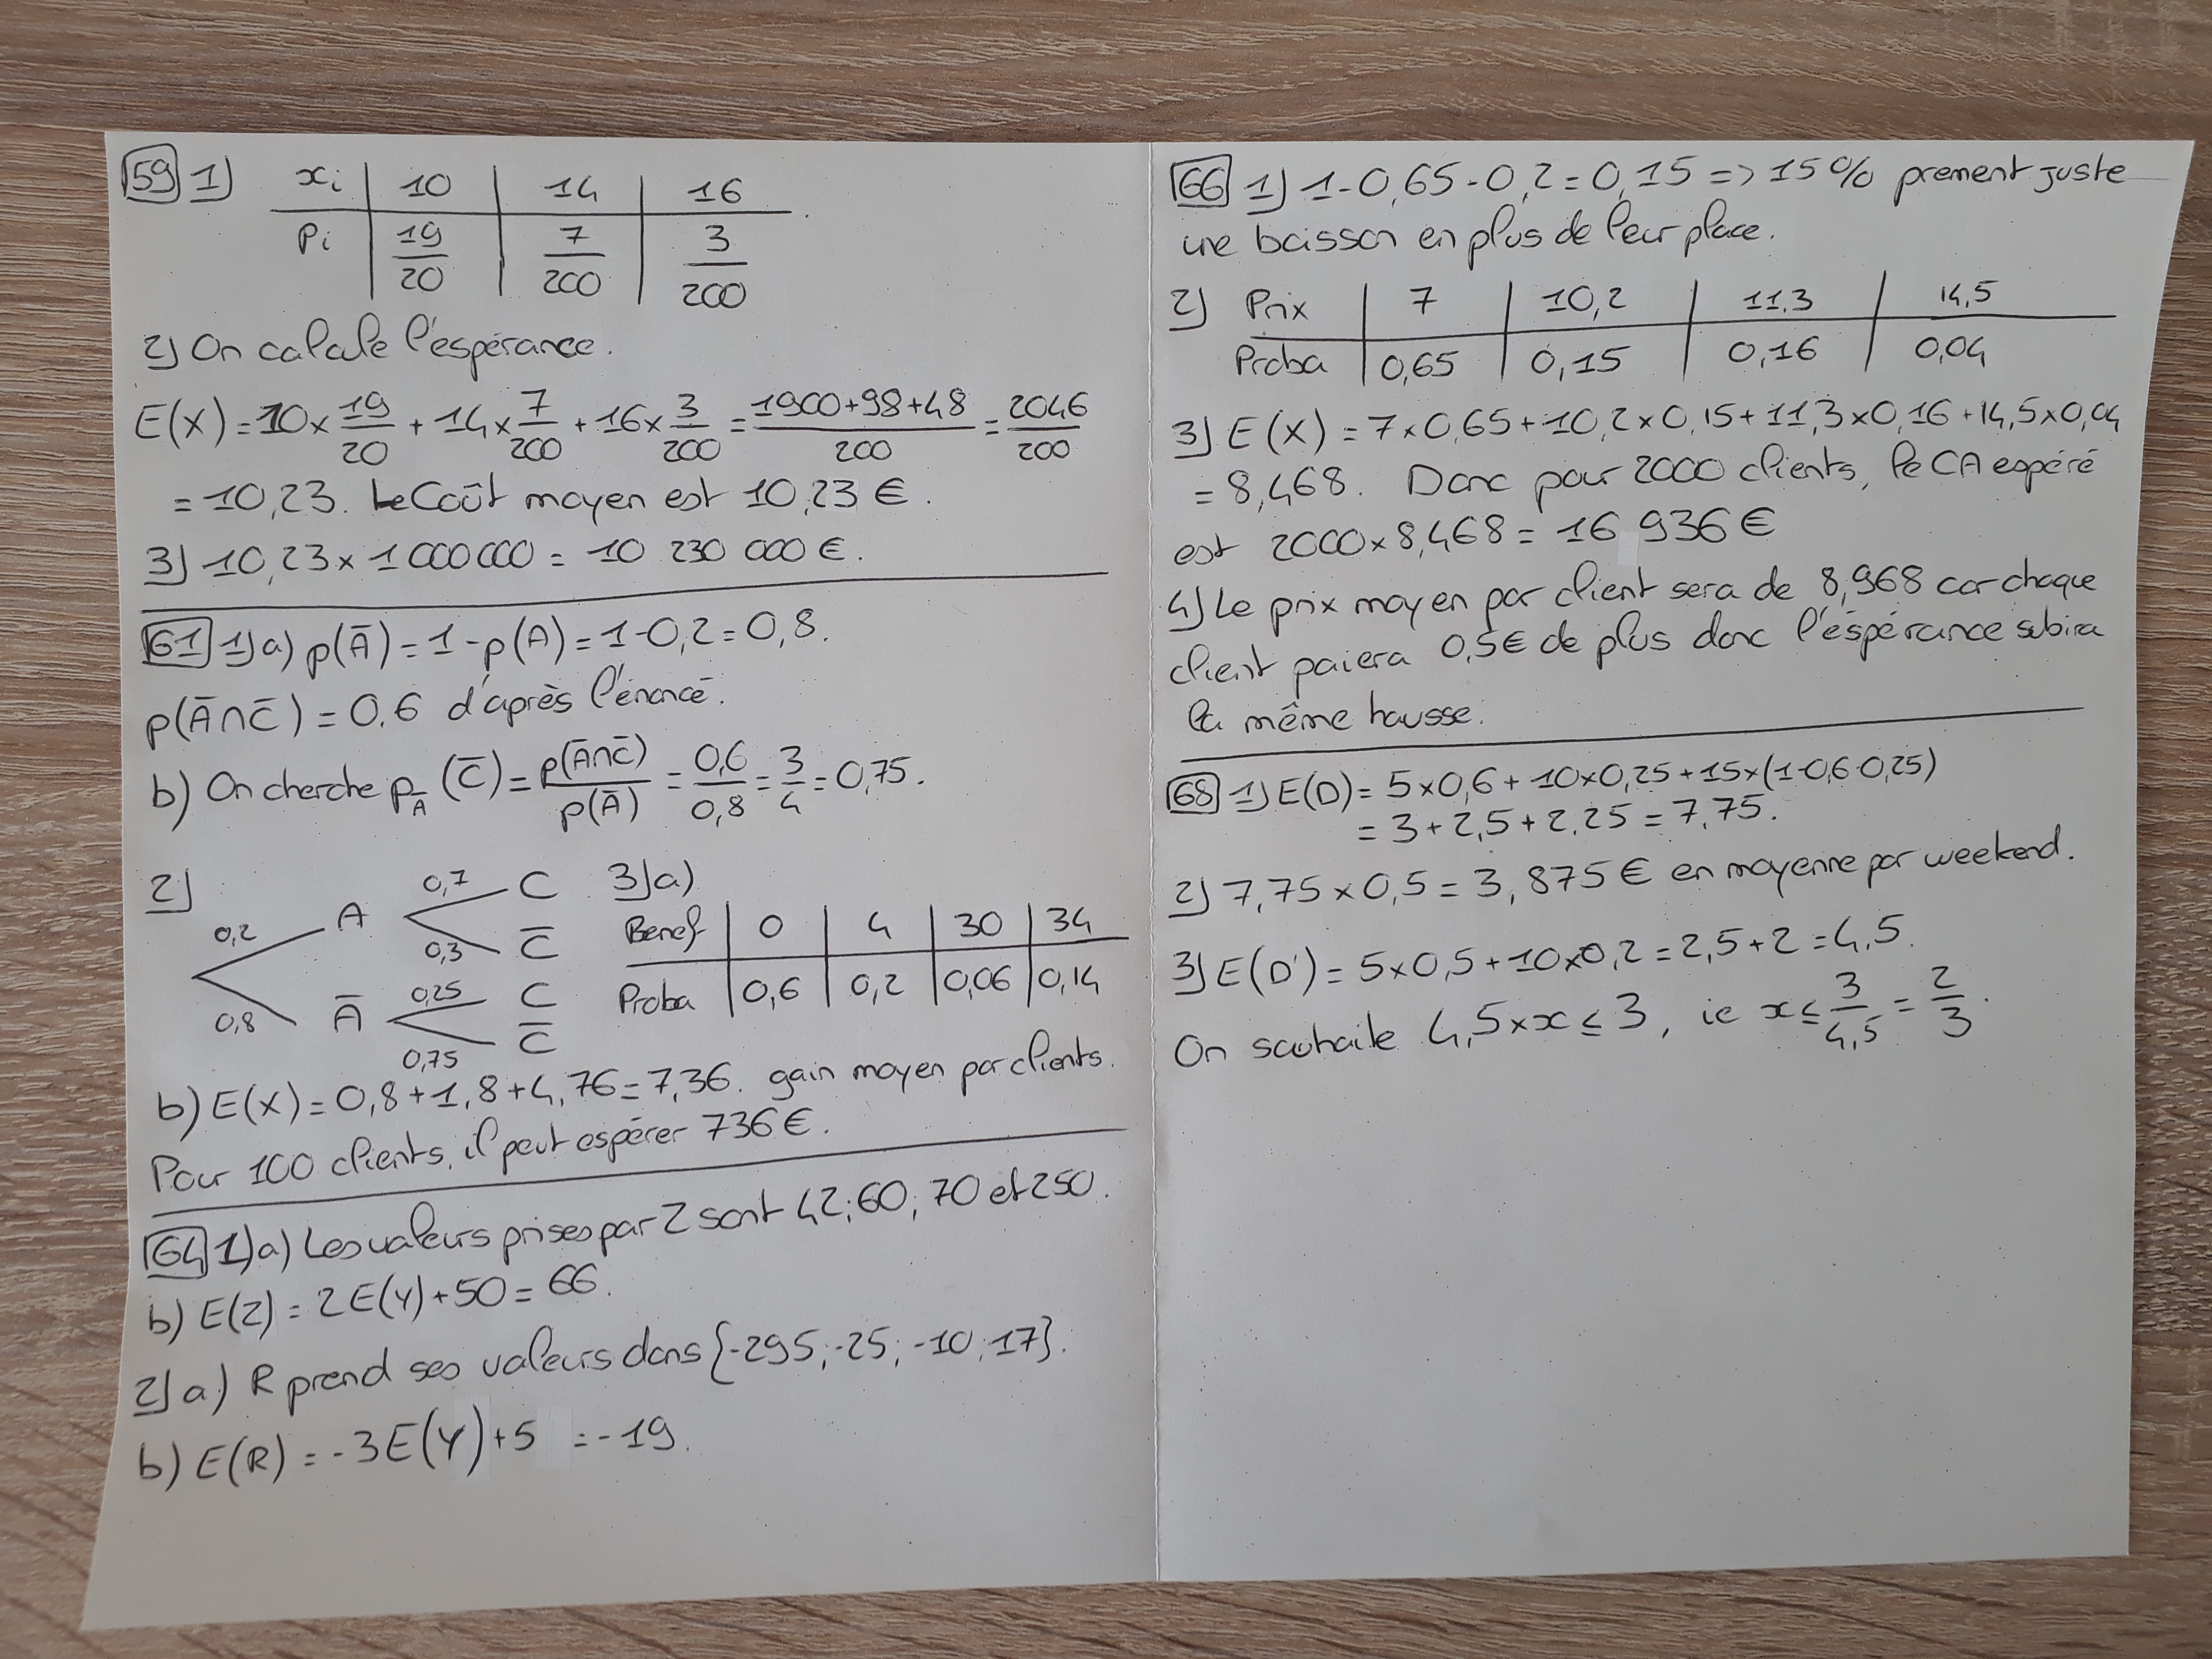 59 1) xi | 10 | 14 | 16
Pi | 19/20 | 7/200 | 3/200
2) On calcule l'espérance.
E(X) = 10 × 19/20 + 14 × 7/200 + 16 × 3/200 = 1900+98+48/200 = 2046/200
= 10,23. Le Coût moyen est 10,23 €.
3) 10,23 × 1 000 000 = 10 230 000 €.
61 1) a) p(Ā) = 1 - p(A) = 1-0,2 = 0,8.
p(Ā∩C̄) = 0,6 d'après l'énoncé.
b) On cherche p_Ā (C̄) = p(Ā∩C̄)/p(Ā) = 0,6/0,8 = 3/4 = 0,75.
2)
0,2 A 0,7 C
0,3 C̄
0,8 Ā 0,25 C
0,75 C̄
3) a)
Benef | 0 | 4 | 30 | 34
Proba | 0,6 | 0,2 | 0,06 | 0,14
b) E(X) = 0,8+1,8+4,76 = 7,36. gain moyen par clients.
Pour 100 clients, il peut espérer 736 €.
64 1) a) Les valeurs prises par Z sont 42; 60; 70 et 250.
b) E(Z) = 2E(Y)+50 = 66.
2) a) R prend ses valeurs dans {-295; -25; -10; 17}.
b) E(R) = -3E(Y)+5 = -19.
66 1) 1-0,65-0,2 = 0,15 => 15% prennent juste
une boisson en plus de leur place.
2) Prix | 7 | 10,2 | 11,3 | 14,5
Proba | 0,65 | 0,15 | 0,16 | 0,04
3) E(X) = 7×0,65+10,2×0,15+11,3×0,16+14,5×0,04
= 8,468. Donc pour 2000 clients, le CA espéré
est 2000×8,468 = 16 936 €
4) Le prix moyen par client sera de 8,968 car chaque
client paiera 0,5€ de plus donc l'éspérance subira
la même hausse.
68 1) E(D) = 5×0,6+10×0,25+15×(1-0,6-0,25)
= 3+2,5+2,25 = 7,75.
2) 7,75×0,5 = 3,875 € en moyenne par weekend.
3) E(D') = 5×0,5+10×0,2 = 2,5+2 = 4,5.
On souhaite 4,5×x ≤ 3, ie x ≤ 3/4,5 = 2/3.